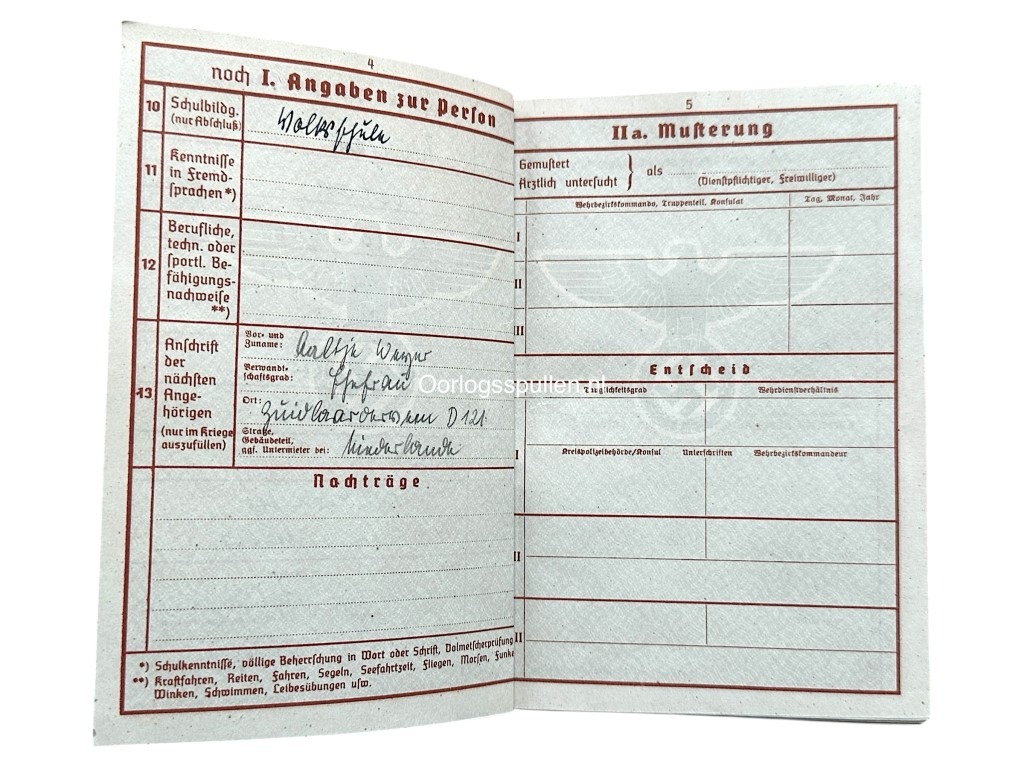 4
noch I. Angaben zur Person
10 Schulbildg.
(nur Abschluß)
Volksschule
11 Kenntnisse
in Fremd-
sprachen *)
12 Berufliche,
techn. oder
sportl. Be-
fähigungs-
nachweise
**)
13 Anschrift
der
nächsten
Ange-
hörigen
(nur im Kriege
auszufüllen)
Vor- und
Zuname: Aaltje
Verwandt-
schaftsgrad: Ehefrau
Ort: Zuidlaarderveen D 121
Straße,
Gebäudeteil,
ggf. Untermieter bei: Niederlande
Nachträge
*) Schulkenntnisse, völlige Beherrschung in Wort oder Schrift, Dolmetscherprüfung
**) Kraftfahren, Reiten, Fahren, Segeln, Seefahrtzeit, Fliegen, Morsen, Funke
Winken, Schwimmen, Leibesübungen usw.
Oorlogsspullen.nl
5
IIa. Musterung
Gemustert
Ärztlich untersucht } als
(Dienstpflichtiger, Freiwilliger)
Wehrbezirkskommando, Truppenteil, Konsulat Tag, Monat, Jahr
I
II
III
Entscheid
Tauglichkeitsgrad Wehrdienstverhältnis
I
Kreispolizeibehörde/Konsul Unterschriften Wehrbezirkskommandeur
II
II